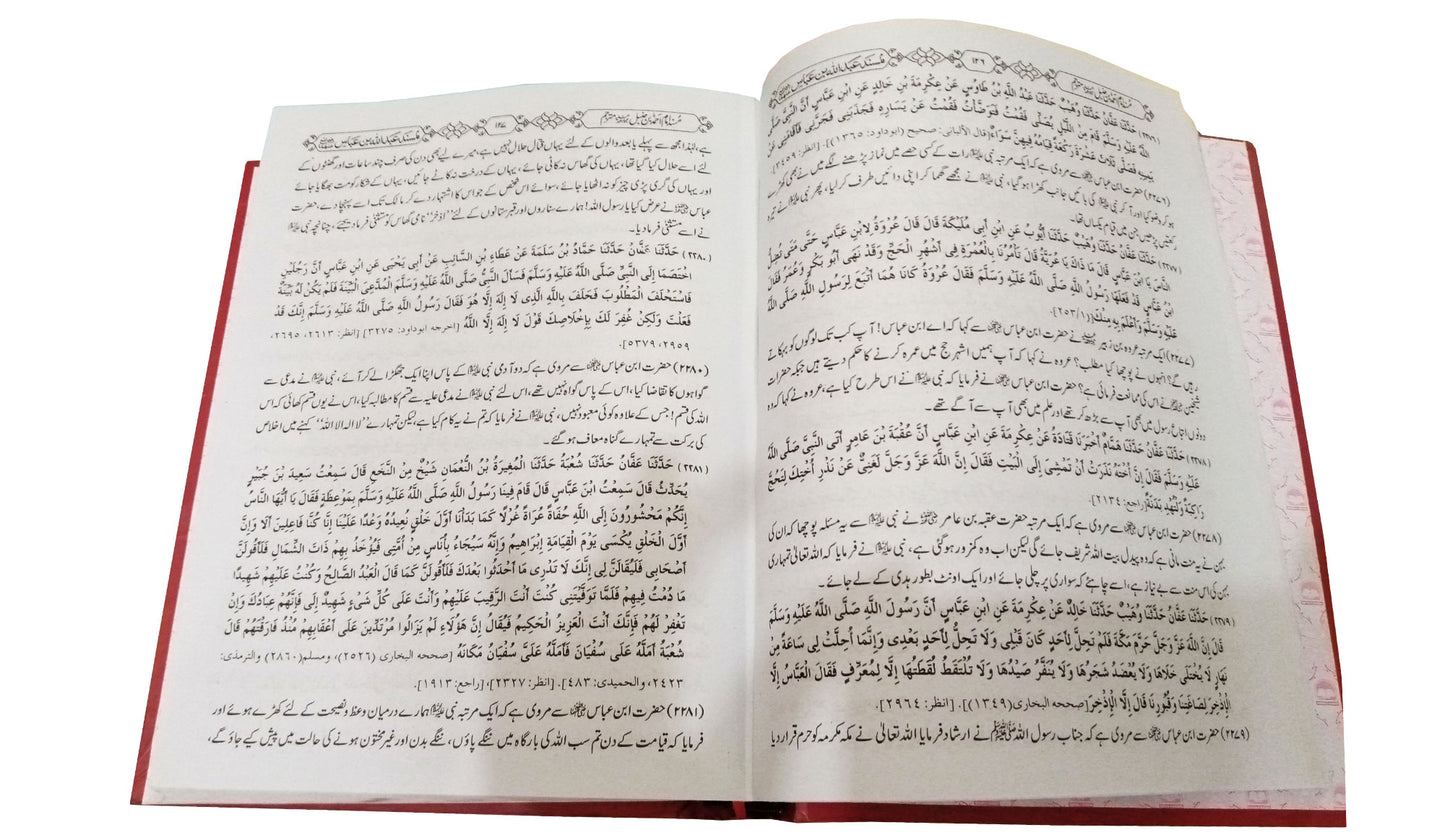 مُسنَد عَبد الله بن عَباس ۱۲۶ مُسنَد امام احمد بن حنبل مترجم
(۲۲۷۶) حَدَّثَنَا عَفَّانُ حَدَّثَنَا وُهَيْبٌ حَدَّثَنَا عَبْدُ اللَّهِ بْنُ طَاوُسٍ عَنْ عِكْرِمَةَ بْنِ خَالِدٍ عَنِ ابْنِ عَبَّاسٍ أَنَّ النَّبِيَّ صَلَّى
اللَّهُ عَلَيْهِ وَسَلَّمَ قَامَ مِنَ اللَّيْلِ يُصَلِّي فَقُمْتُ فَتَوَضَّأْتُ فَقُمْتُ عَنْ يَسَارِهِ فَجَذَبَنِي فَجَرَّنِي فَأَقَامَنِي عَنْ
يَمِينِهِ فَصَلَّى ثَلَاثَ عَشْرَةَ رَكْعَةً قِيَامُهُ فِيهِنَّ سَوَاءٌ [قال الألبانى: صحيح (ابوداود: ۱۳٦٥)]. [انظر: ٣٤٥٩].
(۲۲۷۶) حضرت ابن عباس سے مروی ہے کہ ایک مرتبہ نبی رات کے کسی حصے میں نماز پڑھنے لگے میں نے بھی کھڑے
ہو کر وضو کیا اور آ کر نبی کی بائیں جانب کھڑا ہو گیا، نبی نے مجھے گھما کر اپنی دائیں طرف کر لیا، پھر نبی نے تیرہ
رکعتیں پڑھیں جن میں قیام یکساں تھا۔
(۲۲۷۷) حَدَّثَنَا عَفَّانُ حَدَّثَنَا وُهَيْبٌ حَدَّثَنَا أَيُّوبُ عَنِ ابْنِ أَبِي مُلَيْكَةَ قَالَ قَالَ عُرْوَةُ لِابْنِ عَبَّاسٍ حَتَّى مَتَى تُضِلُّ
النَّاسَ يَا ابْنَ عَبَّاسٍ قَالَ مَا ذَاكَ يَا عُرَيَّةُ قَالَ تَأْمُرُنَا بِالْعُمْرَةِ فِي أَشْهُرِ الْحَجِّ وَقَدْ نَهَى أَبُو بَكْرٍ وَعُمَرُ فَقَالَ
ابْنُ عَبَّاسٍ قَدْ فَعَلَهَا رَسُولُ اللَّهِ صَلَّى اللَّهُ عَلَيْهِ وَسَلَّمَ فَقَالَ عُرْوَةُ كَانَا هُمَا أَتْبَعَ لِرَسُولِ اللَّهِ صَلَّى اللَّهُ
عَلَيْهِ وَسَلَّمَ وَأَعْلَمَ بِهِ مِنْكَ (١/٢٥٣).
(۲۲۷۷) ایک مرتبہ عروہ بن زبیر نے حضرت ابن عباس سے کہا کہ اے ابن عباس! آپ کب تک لوگوں کو بہکاتے
رہیں گے؟ انہوں نے پوچھا کیا مطلب؟ عروہ نے کہا کہ آپ ہمیں اشہر حج میں عمرہ کرنے کا حکم دیتے ہیں جبکہ حضرات
شیخین نے اس کی ممانعت فرمائی ہے؟ حضرت ابن عباس نے فرمایا کہ نبی نے اس طرح کیا ہے، عروہ نے کہا کہ وہ
دونوں اتباع رسول میں بھی آپ سے بڑھ کر تھے اور علم میں بھی آپ سے آگے تھے۔
(۲۲۷۸) حَدَّثَنَا عَفَّانُ حَدَّثَنَا هَمَّامٌ أَخْبَرَنَا قَتَادَةُ عَنْ عِكْرِمَةَ عَنِ ابْنِ عَبَّاسٍ أَنَّ عُقْبَةَ بْنَ عَامِرٍ أَتَى النَّبِيَّ صَلَّى اللَّهُ
عَلَيْهِ وَسَلَّمَ فَقَالَ إِنَّ أُخْتَهُ نَذَرَتْ أَنْ تَمْشِيَ إِلَى الْبَيْتِ فَقَالَ إِنَّ اللَّهَ عَزَّ وَجَلَّ لَغَنِيٌّ عَنْ نَذْرِ أُخْتِكَ لِتَحُجَّ
رَاكِبَةً وَلْتُهْدِ بَدَنَةً [راجع: ٢١٣٤].
(۲۲۷۸) حضرت ابن عباس سے مروی ہے کہ ایک مرتبہ حضرت عقبہ بن عامر نے نبی سے یہ مسئلہ پوچھا کہ ان کی
بہن نے یہ منت مانی ہے کہ وہ پیدل بیت اللہ شریف جائے گی لیکن اب وہ کمزور ہو گئی ہے، نبی نے فرمایا کہ اللہ تعالیٰ تمہاری
بہن کی اس منت سے بے نیاز ہے، اسے چاہئے کہ سواری پر چلی جائے اور ایک اونٹ بطور ہدی کے لے جائے۔
(۲۲۷۹) حَدَّثَنَا عَفَّانُ حَدَّثَنَا وُهَيْبٌ حَدَّثَنَا خَالِدٌ عَنْ عِكْرِمَةَ عَنِ ابْنِ عَبَّاسٍ أَنَّ رَسُولَ اللَّهِ صَلَّى اللَّهُ عَلَيْهِ وَسَلَّمَ
قَالَ إِنَّ اللَّهَ عَزَّ وَجَلَّ حَرَّمَ مَكَّةَ فَلَمْ تَحِلَّ لِأَحَدٍ كَانَ قَبْلِي وَلَا تَحِلُّ لِأَحَدٍ بَعْدِي وَإِنَّمَا أُحِلَّتْ لِي سَاعَةً مِنْ
نَهَارٍ لَا يُخْتَلَى خَلَاهَا وَلَا يُعْضَدُ شَجَرُهَا وَلَا يُنَفَّرُ صَيْدُهَا وَلَا تُلْتَقَطُ لُقَطَتُهَا إِلَّا لِمُعَرِّفٍ فَقَالَ الْعَبَّاسُ إِلَّا
الْإِذْخِرَ لِصَاغَتِنَا وَقُبُورِنَا قَالَ إِلَّا الْإِذْخِرَ [صححه البخارى (١٣٤٩)]. [انظر: ٢٩٦٤].
(۲۲۷۹) حضرت ابن عباس سے مروی ہے کہ جناب رسول اللہ ﷺ نے ارشاد فرمایا اللہ تعالیٰ نے مکہ مکرمہ کو حرم قرار دیا
مُسنَد امام احمد بن حنبل مترجم ۱۲۷ مُسنَد عَبد الله بن عَباس
ہے، لہٰذا مجھ سے پہلے یا بعد والوں کے لئے یہاں قتال حلال نہیں ہے، میرے لیے بھی دن کی صرف چند ساعات اور گھنٹوں کے
لئے اسے حلال کیا گیا تھا، یہاں کی گھاس نہ کاٹی جائے، یہاں کے درخت نہ کاٹے جائیں، یہاں کے شکار کو مت بھگایا جائے
اور یہاں کی گری پڑی چیز کو نہ اٹھایا جائے، سوائے اس شخص کے جو اس کا اشتہار دے کر مالک تک اسے پہنچا دے، حضرت
عباس نے عرض کیا یا رسول اللہ! ہمارے سناروں اور قبرستانوں کے لئے ”اذخر“ نامی گھاس کو مستثنیٰ فرما دیجئے، چنانچہ نبی
نے اسے مستثنیٰ فرما دیا۔
(۲۲۸۰) حَدَّثَنَا عَفَّانُ حَدَّثَنَا حَمَّادُ بْنُ سَلَمَةَ عَنْ عَطَاءِ بْنِ السَّائِبِ عَنْ أَبِي يَحْيَى عَنِ ابْنِ عَبَّاسٍ أَنَّ رَجُلَيْنِ
اخْتَصَمَا إِلَى النَّبِيِّ صَلَّى اللَّهُ عَلَيْهِ وَسَلَّمَ فَسَأَلَ النَّبِيُّ صَلَّى اللَّهُ عَلَيْهِ وَسَلَّمَ الْمُدَّعِيَ الْبَيِّنَةَ فَلَمْ يَكُنْ لَهُ بَيِّنَةٌ
فَاسْتَحْلَفَ الْمَطْلُوبَ فَحَلَفَ بِاللَّهِ الَّذِي لَا إِلَهَ إِلَّا هُوَ فَقَالَ رَسُولُ اللَّهِ صَلَّى اللَّهُ عَلَيْهِ وَسَلَّمَ إِنَّكَ قَدْ
فَعَلْتَ وَلَكِنْ غُفِرَ لَكَ بِإِخْلَاصِكَ قَوْلَ لَا إِلَهَ إِلَّا اللَّهُ [اخرجه ابوداود: ٣٢٧٥] [انظر: ٢٦١٣، ٢٦٩٥،
٢٩٥٩، ٥٣٧٩].
(۲۲۸۰) حضرت ابن عباس سے مروی ہے کہ دو آدمی نبی کے پاس اپنا ایک جھگڑا لے کر آئے، نبی نے مدعی سے
گواہوں کا تقاضا کیا، اس کے پاس گواہ نہیں تھے، اس لئے نبی نے مدعیٰ علیہ سے قسم کا مطالبہ کیا، اس نے یوں قسم کھائی کہ اس
اللہ کی قسم! جس کے علاوہ کوئی معبود نہیں، نبی نے فرمایا کہ تم نے یہ کام کیا ہے، لیکن تمہارے ”لا الہ الا اللہ“ کہنے میں اخلاص
کی برکت سے تمہارے گناہ معاف ہو گئے۔
(۲۲۸۱) حَدَّثَنَا عَفَّانُ حَدَّثَنَا شُعْبَةُ حَدَّثَنَا الْمُغِيرَةُ بْنُ النُّعْمَانِ شَيْخٌ مِنْ النَّخَعِ قَالَ سَمِعْتُ سَعِيدَ بْنَ جُبَيْرٍ
يُحَدِّثُ قَالَ سَمِعْتُ ابْنَ عَبَّاسٍ قَالَ قَامَ فِينَا رَسُولُ اللَّهِ صَلَّى اللَّهُ عَلَيْهِ وَسَلَّمَ بِمَوْعِظَةٍ فَقَالَ يَا أَيُّهَا النَّاسُ
إِنَّكُمْ مَحْشُورُونَ إِلَى اللَّهِ حُفَاةً عُرَاةً غُرْلًا كَمَا بَدَأْنَا أَوَّلَ خَلْقٍ نُعِيدُهُ وَعْدًا عَلَيْنَا إِنَّا كُنَّا فَاعِلِينَ أَلَا وَإِنَّ
أَوَّلَ الْخَلْقِ يُكْسَى يَوْمَ الْقِيَامَةِ إِبْرَاهِيمُ وَإِنَّهُ سَيُجَاءُ بِأُنَاسٍ مِنْ أُمَّتِي فَيُؤْخَذُ بِهِمْ ذَاتَ الشِّمَالِ فَلَأَقُولَنَّ
أَصْحَابِي فَلَيُقَالَنَّ لِي إِنَّكَ لَا تَدْرِي مَا أَحْدَثُوا بَعْدَكَ فَلَأَقُولَنَّ كَمَا قَالَ الْعَبْدُ الصَّالِحُ وَكُنْتُ عَلَيْهِمْ شَهِيدًا
مَا دُمْتُ فِيهِمْ فَلَمَّا تَوَفَّيْتَنِي كُنْتَ أَنْتَ الرَّقِيبَ عَلَيْهِمْ وَأَنْتَ عَلَى كُلِّ شَيْءٍ شَهِيدٌ إِلَى فَإِنَّهُمْ عِبَادُكَ وَإِنْ
تَغْفِرْ لَهُمْ فَإِنَّكَ أَنْتَ الْعَزِيزُ الْحَكِيمُ فَيُقَالُ إِنَّ هَؤُلَاءِ لَمْ يَزَالُوا مُرْتَدِّينَ عَلَى أَعْقَابِهِمْ مُنْذُ فَارَقْتَهُمْ قَالَ
شُعْبَةُ أَمَلَّهُ عَلَى سُفْيَانَ فَأَمَلَّهُ عَلَيَّ سُفْيَانُ مَكَانَهُ [صححه البخارى (٢٥٢٦)، ومسلم (٢٨٦٠) والترمذى:
٢٤٢٣، والحميدى: ٤٨٣]. [انظر: ٢٣٢٧]، [راجع: ١٩١٣].
(۲۲۸۱) حضرت ابن عباس سے مروی ہے کہ ایک مرتبہ نبی ہمارے درمیان وعظ و نصیحت کے لئے کھڑے ہوئے اور
فرمایا کہ قیامت کے دن تم سب اللہ کی بارگاہ میں ننگے پاؤں، ننگے بدن اور غیر مختون ہونے کی حالت میں پیش کیے جاؤ گے،